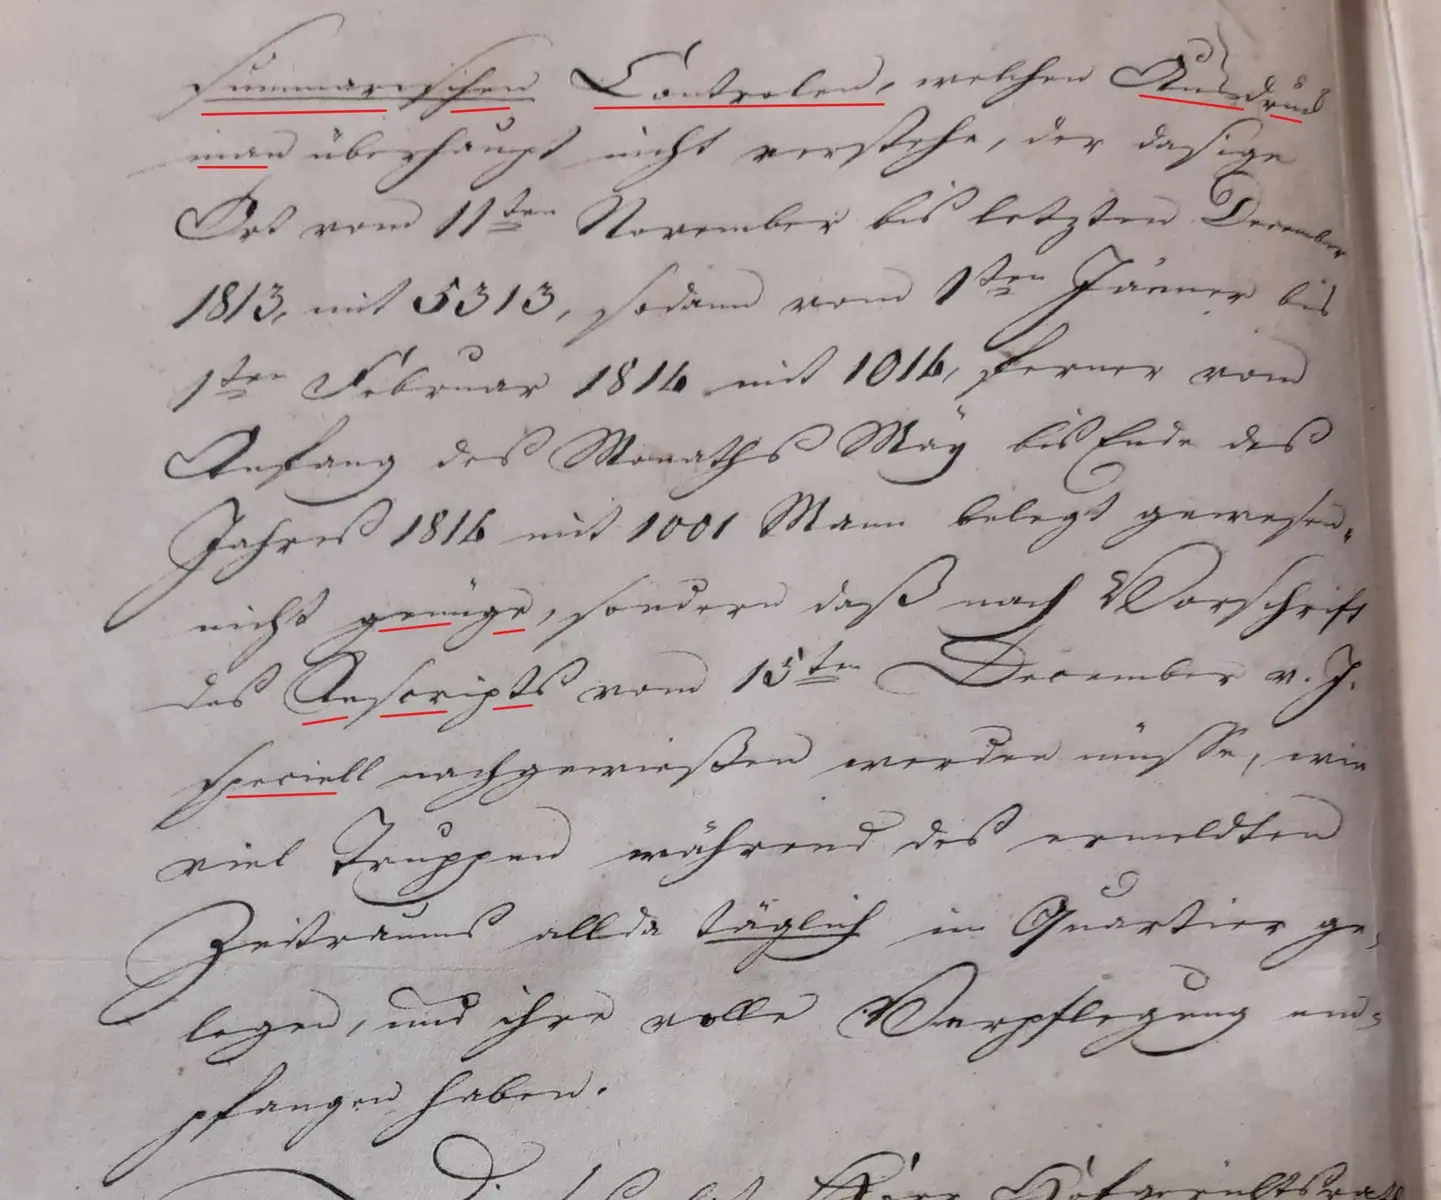 summarischen Controlen, welchen Ausdruck
man überhaupt nicht verstehe, der dasige
Ort vom 11ten November bis letzten December
1813, mit 5313, sodann vom 1ten Jänner bis
1ten Februar 1814 mit 1014, ferner vom
Anfang des Monaths Maÿ bis Ende des
Jahres 1814 mit 1001 Mann belegt gewesen,
nicht genüge, sondern daß nach Vorschrift
des Rescripts vom 15ten December v. J.
speciell nachgewießen werden müsse, wie
viel Truppen während des ermeldten
Zeitraums allda täglich im Quartier ge=
legen, und ihre volle Verpflegung em=
pfangen haben.